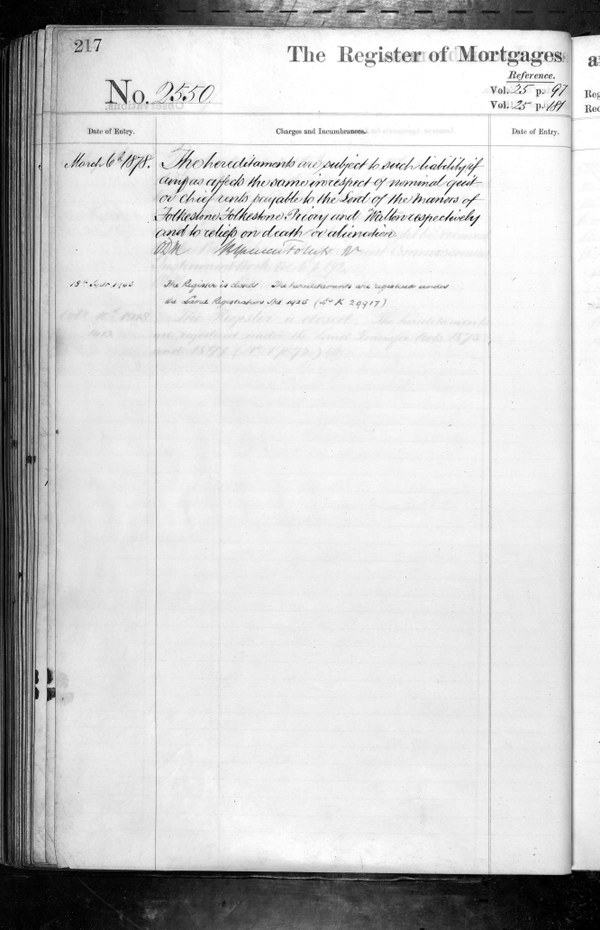 217
The Register of Mortgages
Reference.
No. 2550
Vol. 25 p. 97
Vol. 25 p. 181
Date of Entry.
Charges and Incumbrances.
Date of Entry.
March 6th 1878.
The hereditaments are subject to such liability if
any as affects the same in respect of nominal quit
or chief rents payable to the Lord of the Manors of
Folkestone Folkestone Priory and Walton respectively
and to reliefs on death or alienation
18th Sept.
The Register is closed. The hereditaments are registered under
the Land Registration Act 1925 (No K 29917)
The Register is closed. The hereditaments
are registered under the Land Transfer Acts 1875
and 1897